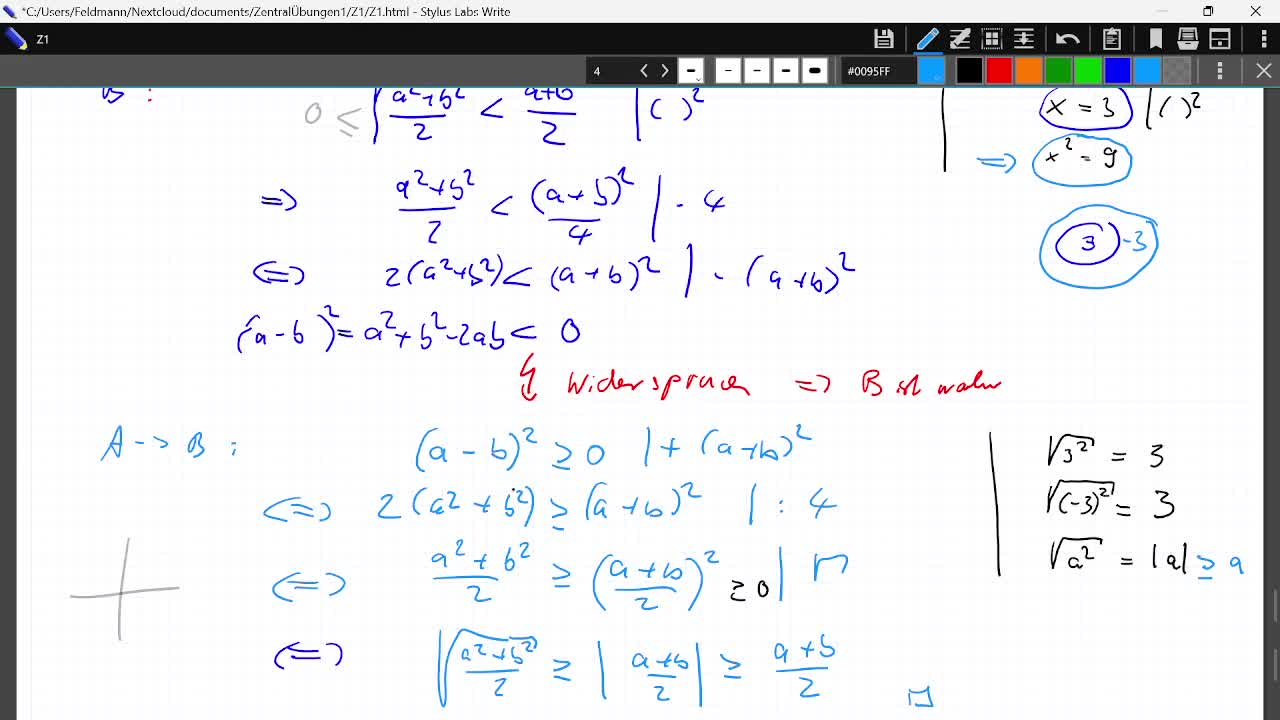 *C:/Users/Feldmann/Nextcloud/documents/ZentralÜbungen1/Z1/Z1.html - Stylus Labs Write
Z1
4 #0095FF
B :
0 ≤ √((a²+b²)/2) < (a+b)/2 | ( )²
⇒ (a²+b²)/2 < (a+b)²/4 | · 4
⇔ 2(a²+b²) < (a+b)² | - (a+b)²
(a-b)² = a²+b²-2ab < 0
↯ Widerspruch ⇒ B ist wahr
x = 3 | ( )²
⇒ x² = 9
3 -3
A -> B : (a-b)² ≥ 0 | + (a+b)²
⇔ 2(a²+b²) ≥ (a+b)² | : 4
⇔ (a²+b²)/2 ≥ ((a+b)/2)² ≥ 0 | √
⇔ √((a²+b²)/2) ≥ |(a+b)/2| ≥ (a+b)/2 □
√(3²) = 3
√((-3)²) = 3
√(a²) = |a| ≥ a